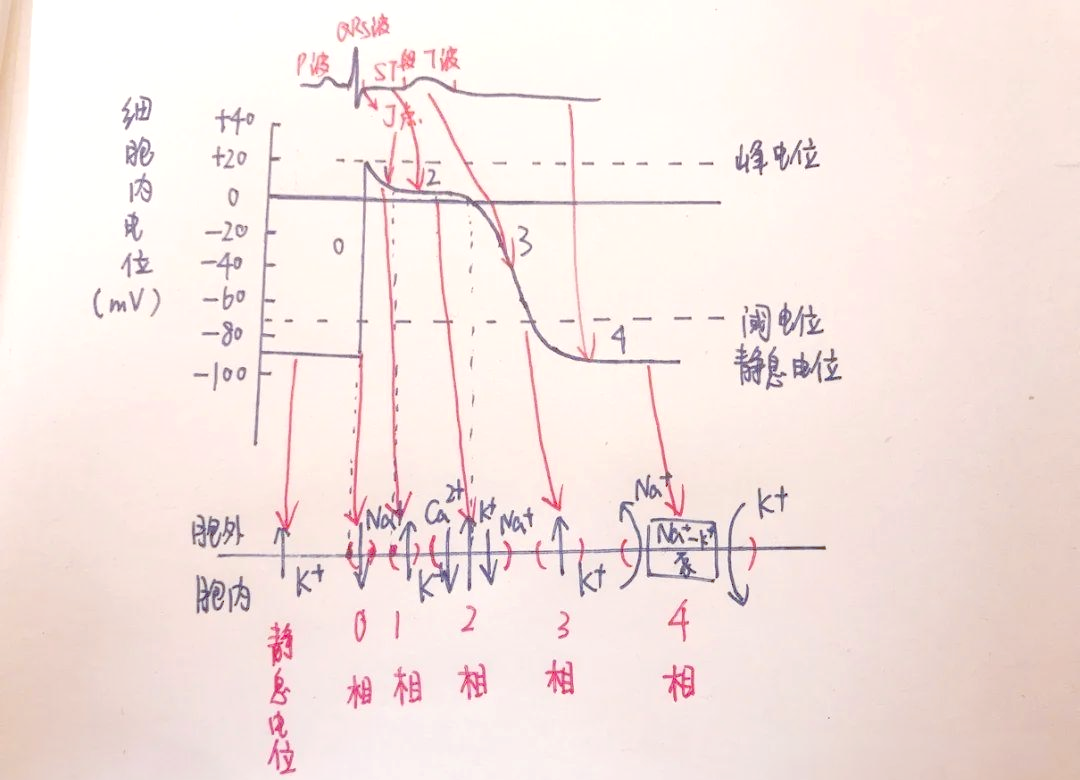 QRS波
P波 ST段 T波
J点
细胞内电位(mV)
+40
+20
0
-20
-40
-60
-80
-100
峰电位
阈电位
静息电位
0
2
3
4
胞外
胞内
K+
Na+
K+
Ca2+
K+
Na+
K+
Na+
Na+-K+
泵
K+
静息电位
0相
1相
2相
3相
4相